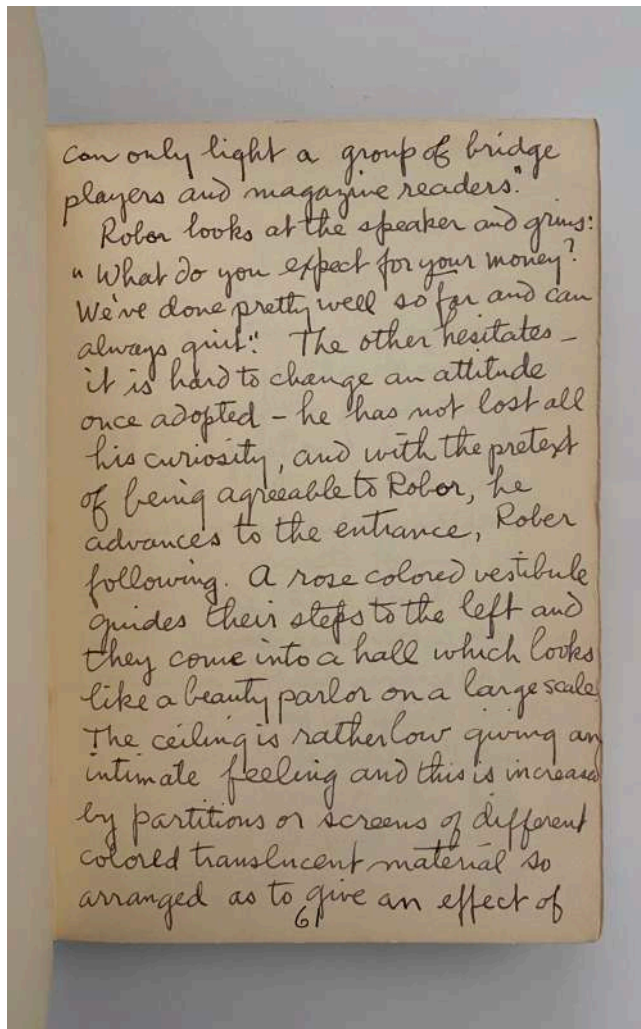 can only light a group of bridge
players and magazine readers."
Robor looks at the speaker and grins:
"What do you expect for your money?
We've done pretty well so far and can
always quit." The other hesitates –
it is hard to change an attitude
once adopted – he has not lost all
his curiosity, and with the pretext
of being agreeable to Robor, he
advances to the entrance, Rober
following. A rose colored vestibule
guides their steps to the left and
they come into a hall which looks
like a beauty parlor on a large scale.
The ceiling is rather low giving an
intimate feeling and this is increased
by partitions or screens of different
colored translucent material so
arranged as to give an effect of
6